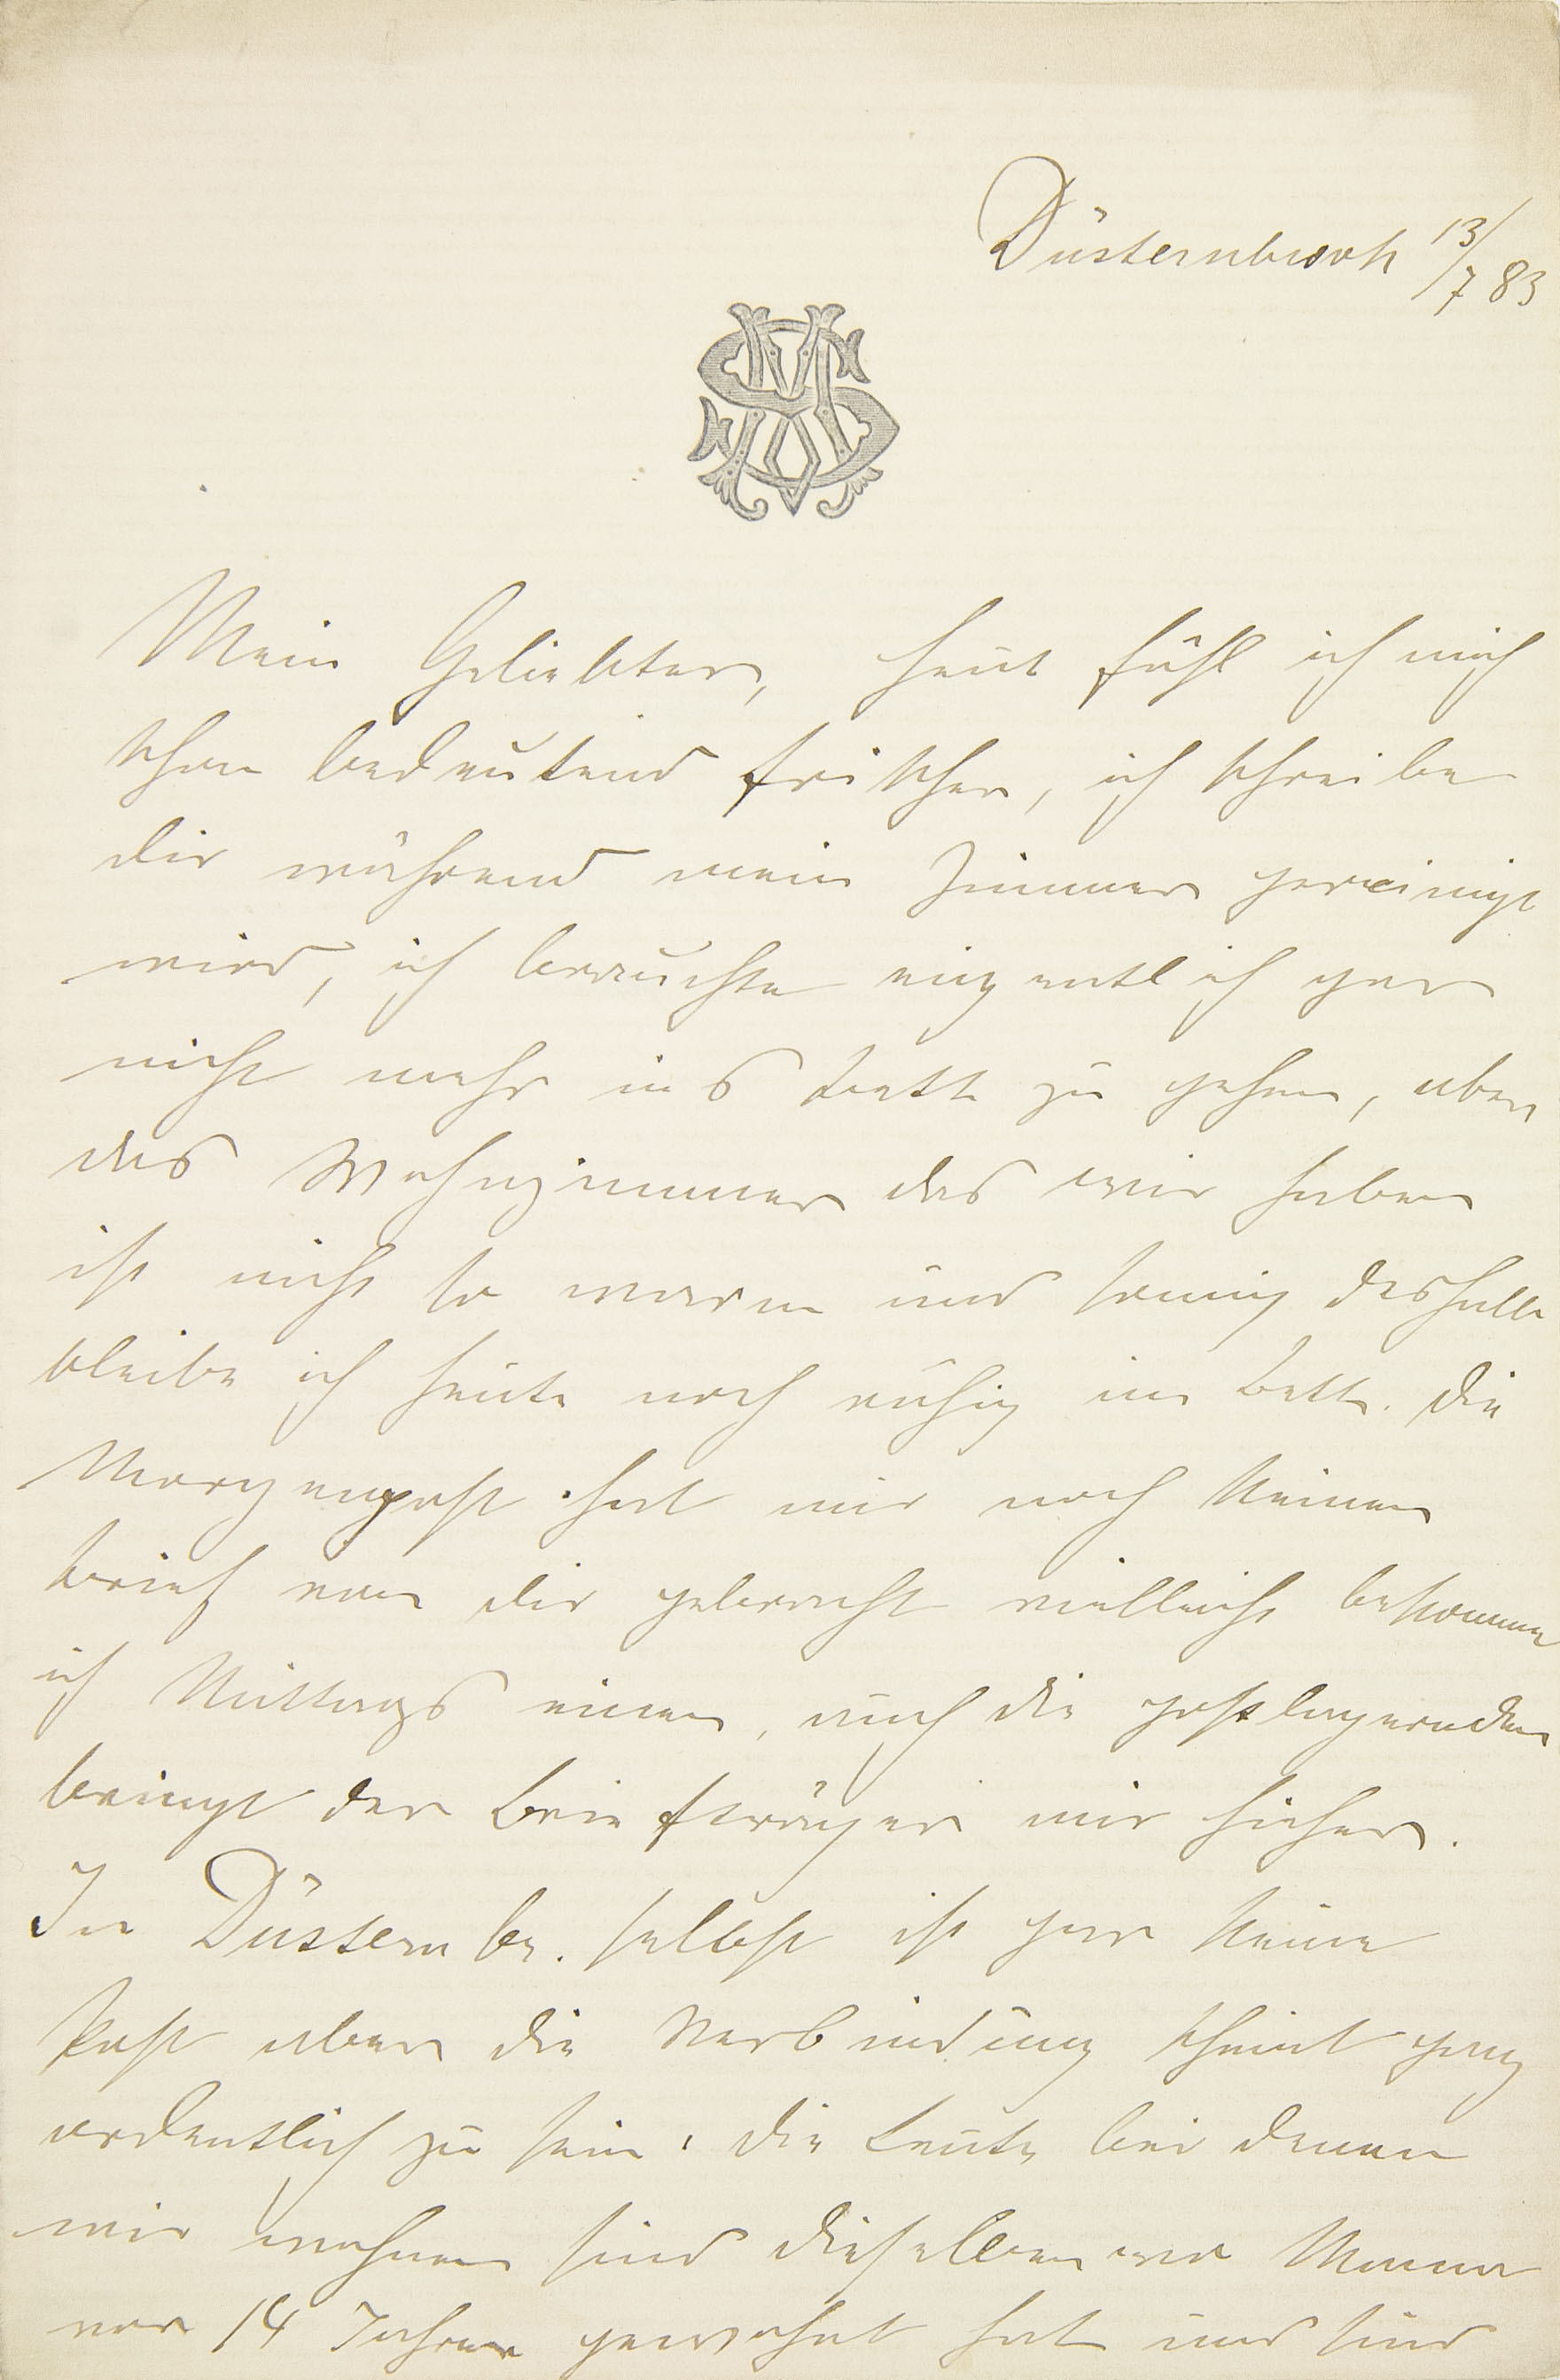 Düsternbrook 13/7 83
Mein Geliebter, heut fühl ich mich
schon bedeutend frischer, ich schreibe
dir während mein Zimmer gereinigt
wird, ich brauchte eigentlich gar
nicht mehr ins Bett zu gehen, aber
das Wohnzimmer das wir haben
ist nicht so warm und sonnig deshalb
bleibe ich heute noch ruhig im Bett. Die
Morgenpost hat mir noch keinen
Brief von dir gebracht vielleicht bekomme
ich Mittags einen, auch die postlagernden
bringt der Briefträger mir hieher.
In Düsternbr. selbst ist gar keine
Post aber die Verbindung scheint ganz
ordentlich zu sein. die Leute bei denen
wir wohnen sind dieselben wo Mama
vor 14 Jahren gewohnt hat und sind